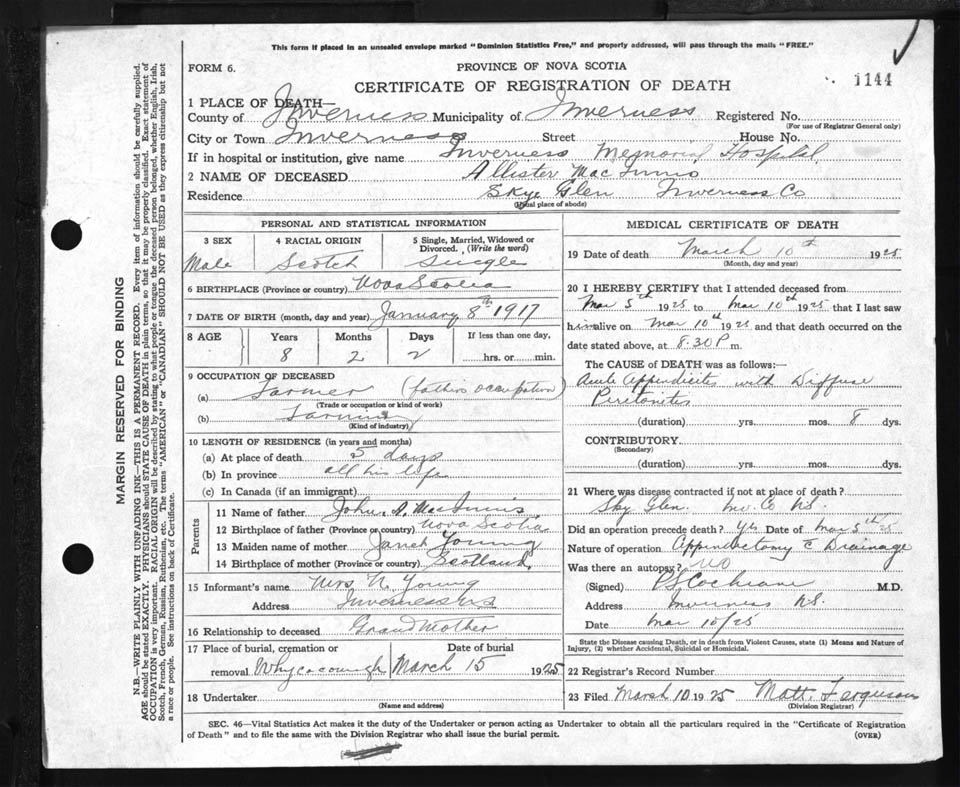 This form if placed in an unsealed envelope marked "Dominion Statistics Free," and properly addressed, will pass through the mails "FREE."
FORM 6.
PROVINCE OF NOVA SCOTIA
CERTIFICATE OF REGISTRATION OF DEATH
1144
1 PLACE OF DEATH—
County of Inverness Municipality of Inverness Registered No.
(For use of Registrar General only)
City or Town Inverness Street House No.
If in hospital or institution, give name Inverness Memorial Hospital
2 NAME OF DECEASED Allister MacInnis
Residence Skye Glen Inverness Co
(Usual place of abode)
PERSONAL AND STATISTICAL INFORMATION
3 SEX 4 RACIAL ORIGIN 5 Single, Married, Widowed or Divorced. (Write the word)
Male Scotch Single
6 BIRTHPLACE (Province or country) Nova Scotia
7 DATE OF BIRTH (month, day and year) January 8th 1917
8 AGE Years Months Days If less than one day,
8 2 2 hrs. or min.
9 OCCUPATION OF DECEASED
(a) Farmer (fathers occupation)
(Trade or occupation or kind of work)
(b) Farming
(Kind of industry)
10 LENGTH OF RESIDENCE (in years and months)
(a) At place of death 5 days
(b) In province all his life
(c) In Canada (if an immigrant)
Parents
11 Name of father John D. MacInnis
12 Birthplace of father (Province or country) Nova Scotia
13 Maiden name of mother Janet Young
14 Birthplace of mother (Province or country) Scotland
15 Informant's name Mrs N. Young
Address Inverness NS
16 Relationship to deceased Grand Mother
17 Place of burial, cremation or removal Whycocough Date of burial March 15 1925
18 Undertaker
(Name and address)
MEDICAL CERTIFICATE OF DEATH
19 Date of death March 10th 1925
(Month, day and year)
20 I HEREBY CERTIFY that I attended deceased from
Mar 5th 1925 to Mar 10th 1925 that I last saw
him alive on Mar 10th 1925 and that death occurred on the
date stated above, at 8.30 P m.
The CAUSE OF DEATH was as follows:
Acute Appendicitis with Diffuse
Peretonites
(duration) yrs. mos. 8 dys.
CONTRIBUTORY
(Secondary)
(duration) yrs. mos. dys.
21 Where was disease contracted if not at place of death?
Sky Glen. Inv. Co NS.
Did an operation precede death? Yes Date of Mar 5th 25
Nature of operation Appendectomy c Drainage
Was there an autopsy? NO
(Signed) Cochrane M.D.
Address Inverness NS.
Date Mar 10/25
State the Disease causing Death, or in death from Violent Causes, state (1) Means and Nature of
Injury, (2) whether Accidental, Suicidal or Homicidal.
22 Registrar's Record Number
23 Filed March 10 1925 Matt. Ferguson
(Division Registrar)
SEC. 46—Vital Statistics Act makes it the duty of the Undertaker or person acting as Undertaker to obtain all the particulars required in the "Certificate of Registration
of Death" and to file the same with the Division Registrar who shall issue the burial permit. (OVER)
MARGIN RESERVED FOR BINDING
N.B.—WRITE PLAINLY WITH UNFADING INK—THIS IS A PERMANENT RECORD. Every item of information should be carefully supplied.
AGE should be stated EXACTLY. PHYSICIANS should STATE CAUSE OF DEATH in plain terms, so that it may be properly classified. Exact statement of
OCCUPATION is very important. RACIAL ORIGIN will be described by stating to what people or tongue the deceased person belonged, whether English, Irish,
Scotch, French, German, Russian, Ruthenian, etc. The terms "AMERICAN" or "CANADIAN" SHOULD NOT BE USED as they express citizenship but not
a race or people. See instructions on back of Certificate.